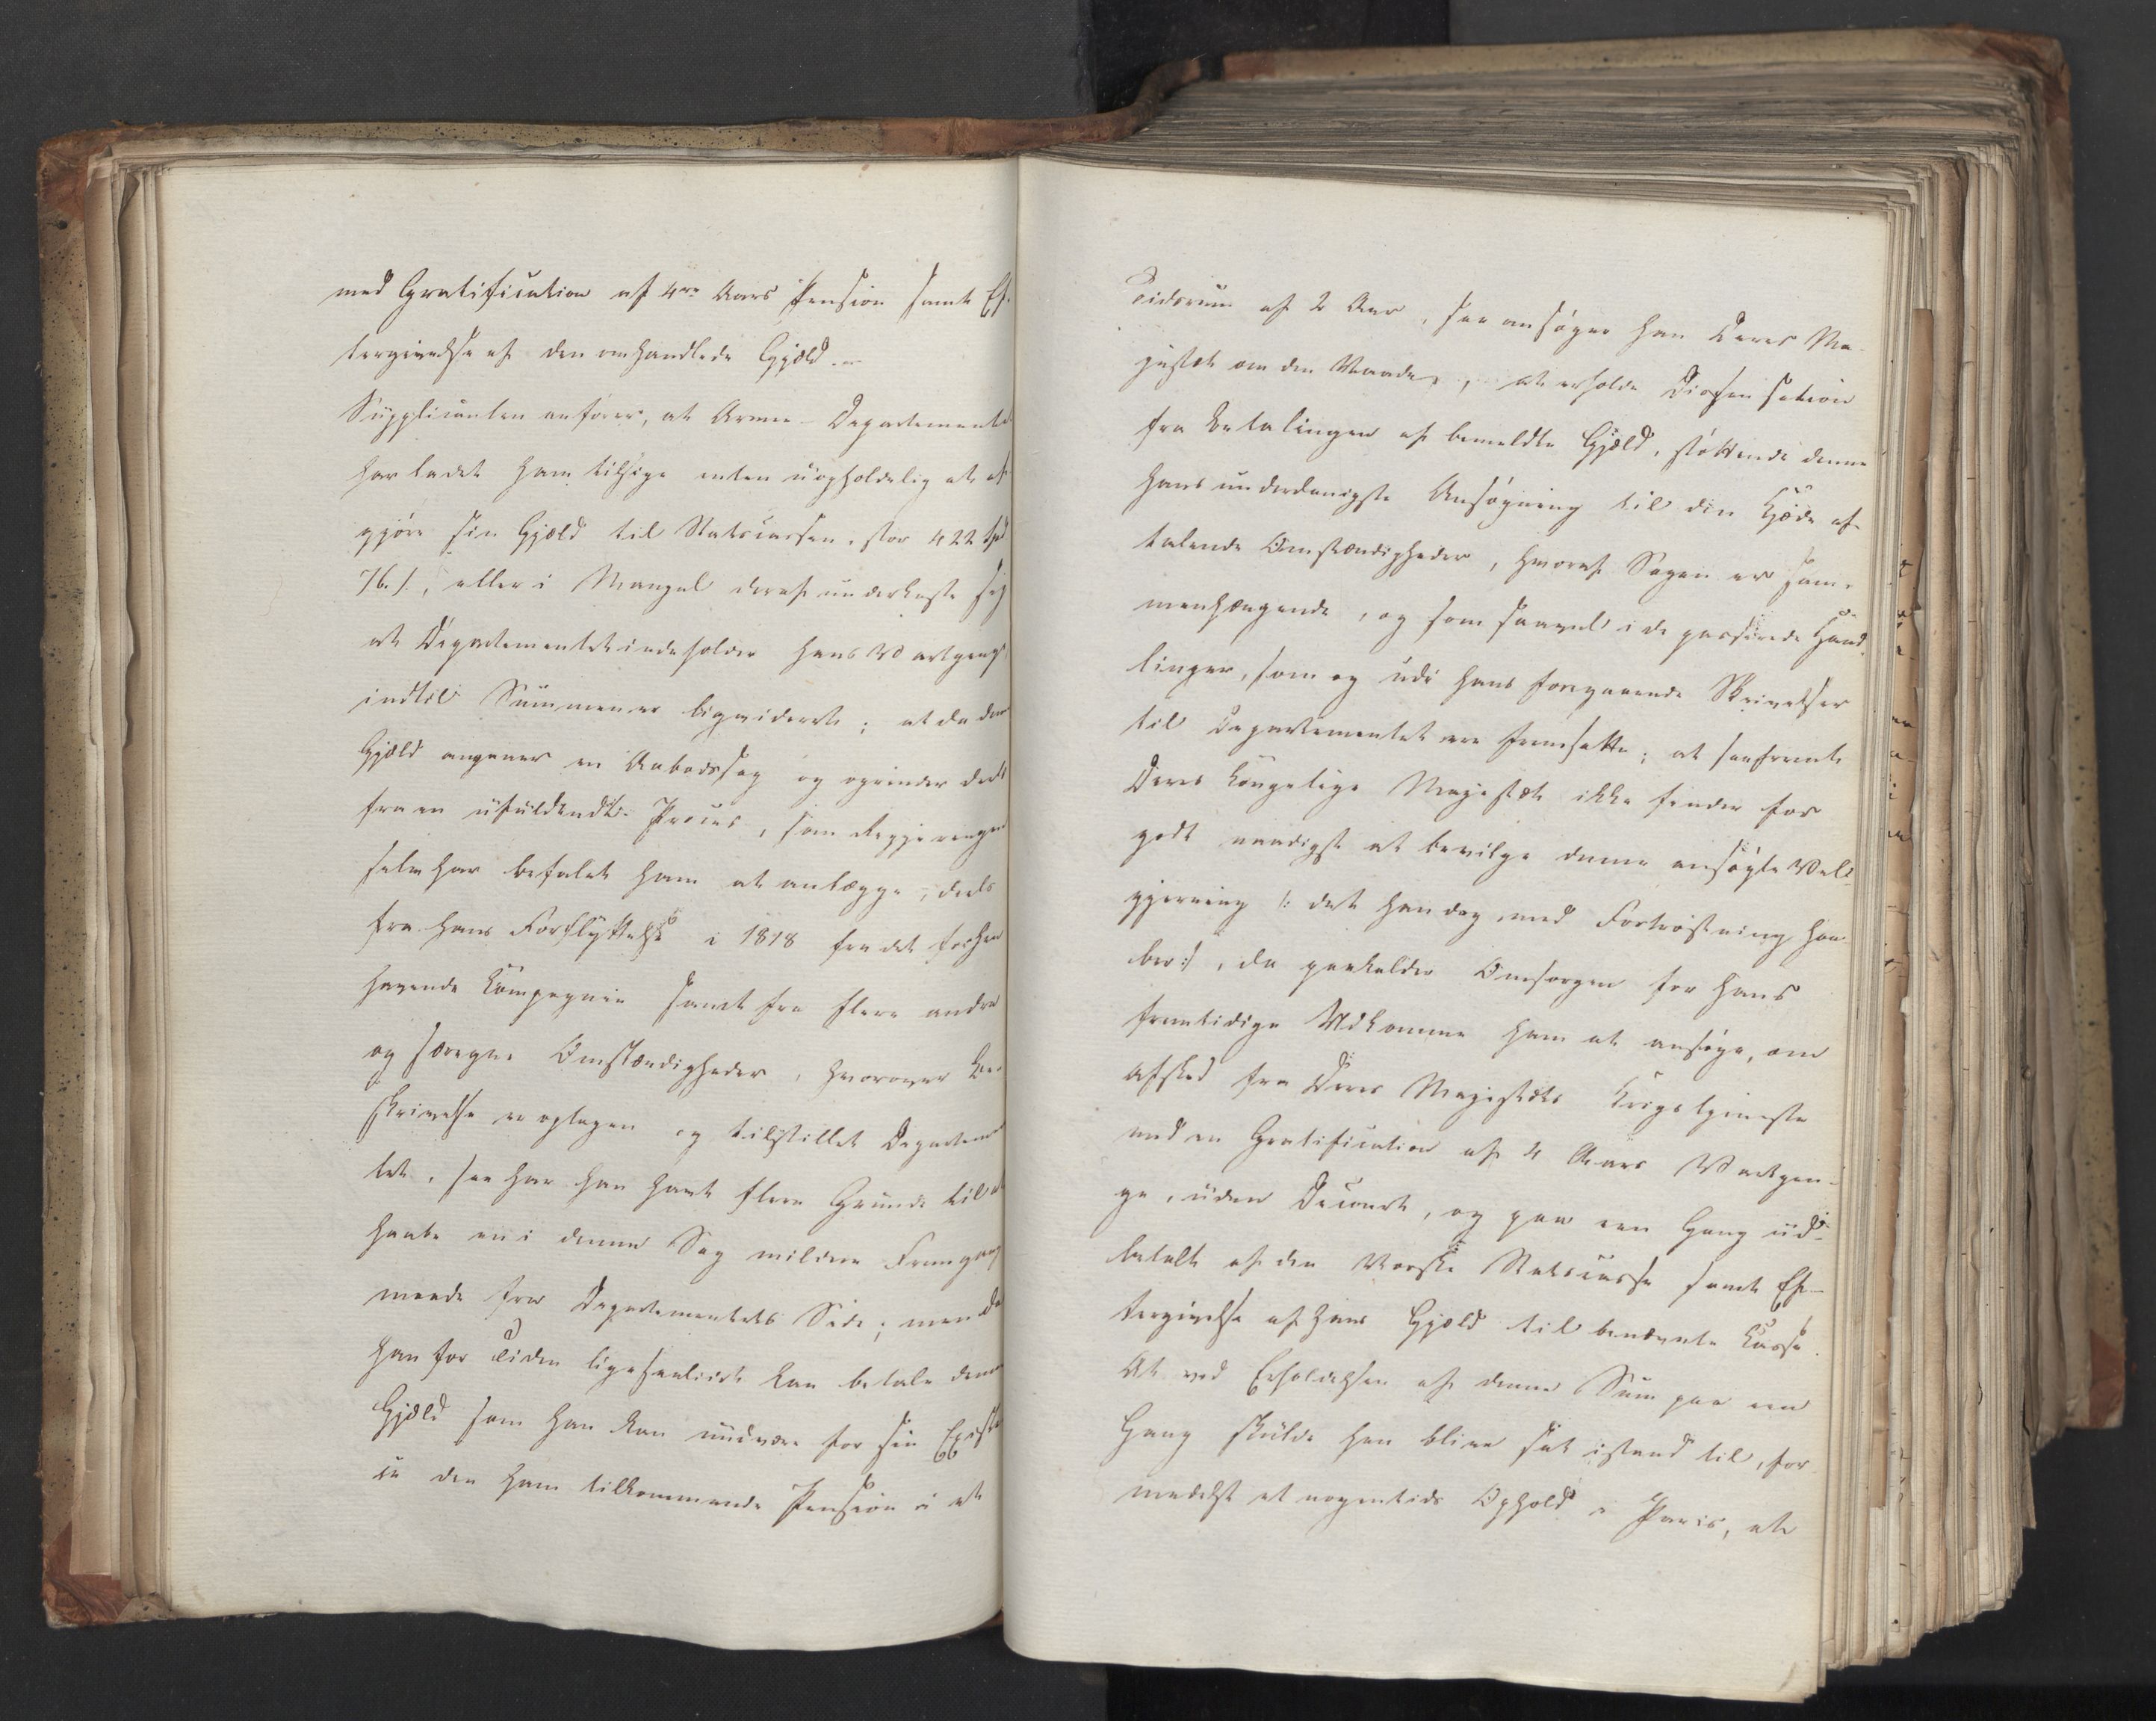 med Gratification af 4re Aars Pension samt Ef-
tergivelse af den omhandlede Gjæld.-
Supplicanten anfører, at Armee-Departementet
har ladet ham tilsige enten uopholdelig at af-
gjøre sin Gjæld til Statscassen, stor 422 Spd
76 s., eller i Mangel deraf underkaste sig
at Departementet indeholder hans Vartpenge
indtil Summen er liqvideret; at da denne
Gjæld angaaer en Aabodssag og oprinder deels
fra en ufuldendt Proces, som Regjeringen
selv har befalet ham at anlægge, deels
fra hans Forflyttelse i 1818 fra det forhen
havende Compagnie samt fra flere andre
og særegne Omstændigheder, hvorover Be-
skrivelse er optagen og tilstillet Departemen-
tet, saa har han havt flere Grunde til at
haabe en i denne Sag mildere Fremgangs
maade fra Departementets Side; men da
han for Tiden ligesaalidt kan betale denne
Gjæld som han kan undvære for sin Existen-
ce den ham tilkommende Pension i et
Tidsrum af 2 Aar, saa ansøger han Deres Ma-
jestæt om den Naade, at erholde Dispensation
fra Betalingen af bemeldte Gjæld, støttende denne
hans underdanigste Ansøgning til den Kjæde af
talende Omstændigheder, hvoraf Sagen er sam-
menhængende, og som saavel i de passerede Hand-
linger, som og udi hans foregaaende Skrivelser
til Departementet ere fremsatte; at saafremt
Deres Kongelige Majestæt ikke finder for
godt naadigst at bevilge denne ansøgte Vel-
gjerning /: det han dog med Fortrøstning haa-
ber :/, da paakalder Omsorgen for hans
fremtidige Udkomme ham at ansøge, om
Afsked fra Deres Majestæts Krigstjeneste
med en Gratification af 4 Aars Vartpen-
ge, uden Decourt, og paa een Gang ud-
betalt af den Norske Statscasse samt Ef-
tergivelse af hans Gjæld til benævnte Casse.
At ved Erholdelsen af denne Sum paa een
Gang skulde han blive sat istand til, for
medelst et nogentids Ophold i Paris, at